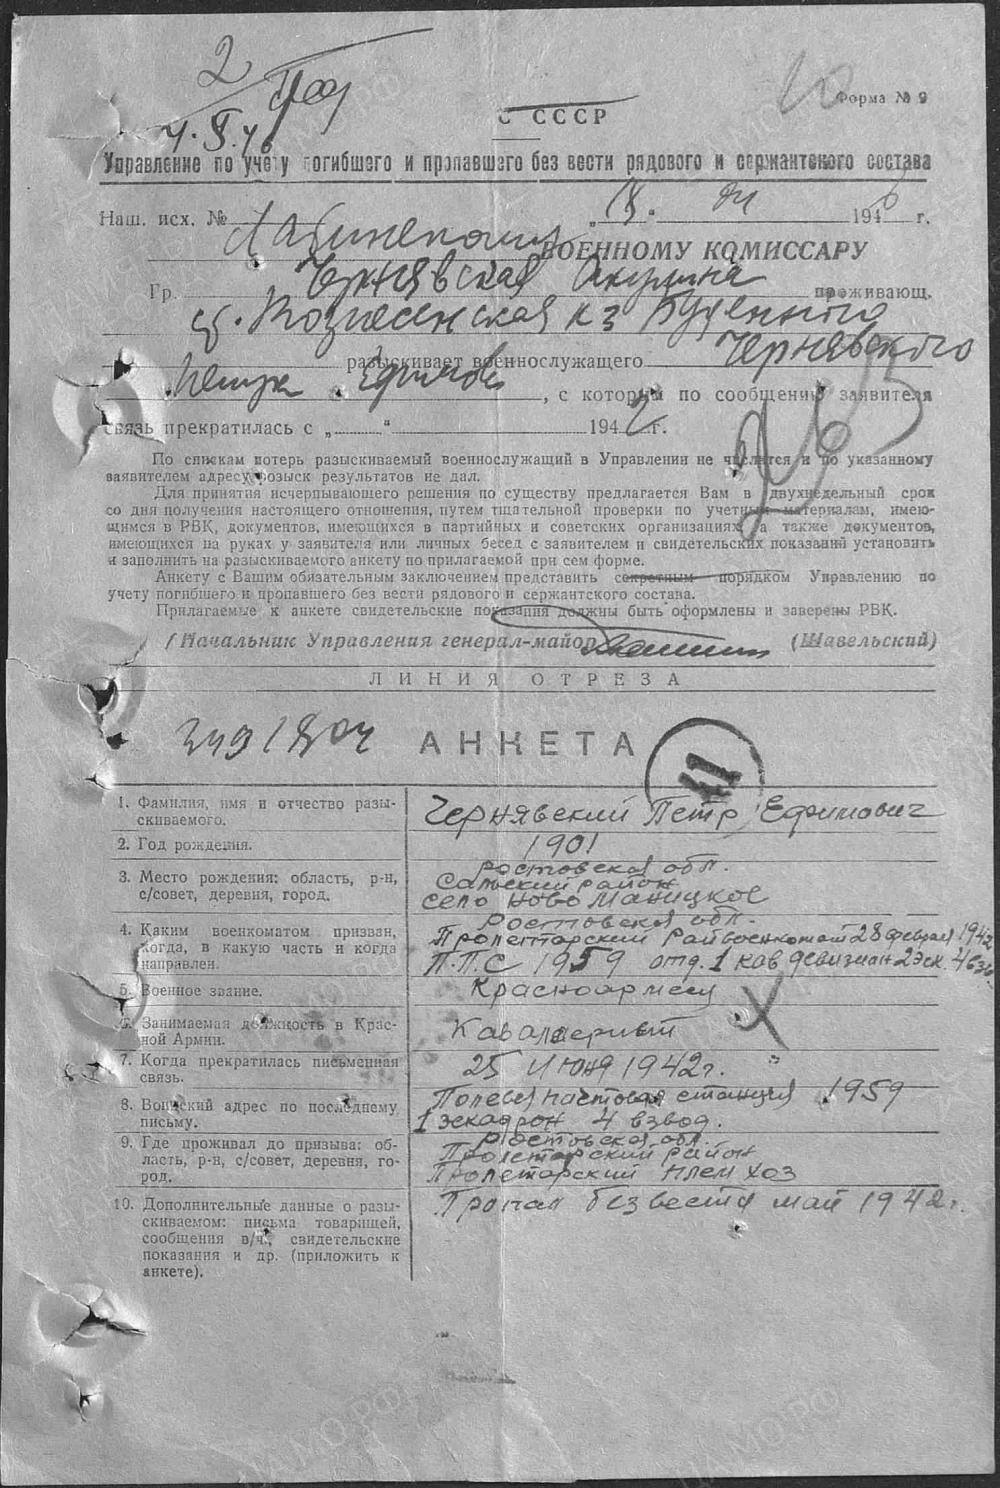 2
4.X.46
Форма № 9
С СССР
Управление по учету погибшего и пропавшего без вести рядового и сержантского состава
Наш. исх. № „ “ 1946 г.
Лабинскому ВОЕННОМУ КОМИССАРУ
Гр. Чернявская Акулина проживающ.
ст. Вознесенская к-з Буденного
разыскивает военнослужащего Чернявского
Ефимов , с которым по сообщению заявителя
связь прекратилась с „ “ 1942 г.
По спискам потерь разыскиваемый военнослужащий в Управлении не числится и по указанному
заявителем адресу розыск результатов не дал.
Для принятия исчерпывающего решения по существу предлагается Вам в двухнедельный срок
со дня получения настоящего отношения, путем тщательной проверки по учетным материалам, имею-
щимся в РВК, документов, имеющихся в партийных и советских организациях, а также документов,
имеющихся на руках у заявителя или личных бесед с заявителем и свидетельских показаний установить
и заполнить на разыскиваемого анкету по прилагаемой при сем форме.
Анкету с Вашим обязательным заключением представить секретным порядком Управлению по
учету погибшего и пропавшего без вести рядового и сержантского состава.
Прилагаемые к анкете свидетельские показания должны быть оформлены и заверены РВК.
Начальник Управления генерал-майор (Шавельский)
ЛИНИЯ ОТРЕЗА
АНКЕТА
41
1. Фамилия, имя и отчество разы-
скиваемого.
Чернявский Петр Ефимович
2. Год рождения.
1901
3. Место рождения: область, р-н,
с/совет, деревня, город.
Ростовская обл.
Сальский район
село Ново Маницкое
4. Каким военкоматом призван,
когда, в какую часть и когда
направлен.
Ростовская обл.
Пролетарский Райвоенкомат 28 февраля 1942
П.П.С 1959 отд. 1 кав девизиан 2 эск. 4 взв
5. Военное звание.
Красноармеец
6. Занимаемая должность в Крас-
ной Армии.
Кавалерист
7. Когда прекратилась письменная
связь.
25 Июня 1942г.
8. Воинский адрес по последнему
письму.
Полевая почтовая станция 1959
1 эскадрон 4 взвод.
9. Где проживал до призыва: об-
ласть, р-н, с/совет, деревня, го-
род.
Ростовская обл.
Пролетарский район
Пролетарский племхоз
10. Дополнительные данные о разы-
скиваемом: письма товарищей,
сообщения в/ч, свидетельские
показания и др. (приложить к
анкете).
Пропал без вести май 1942г.
ЦАМО РФ